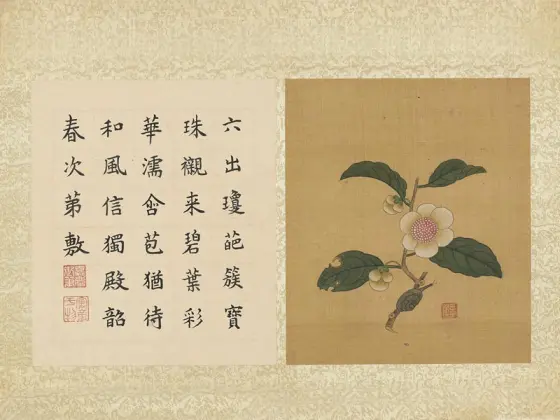 六出瓊葩簇寶
珠襯来碧葉彩
華濡含苞猶待
和風信獨殿韶
春次苐敷